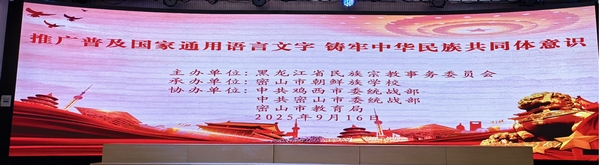 推广普及国家通用语言文字 铸牢中华民族共同体意识
主办单位：黑龙江省民族宗教事务委员会
承办单位：密山市朝鲜族学校
协办单位：中共鸡西市委统战部
中共密山市委统战部
密山市教育局
2025年9月16日